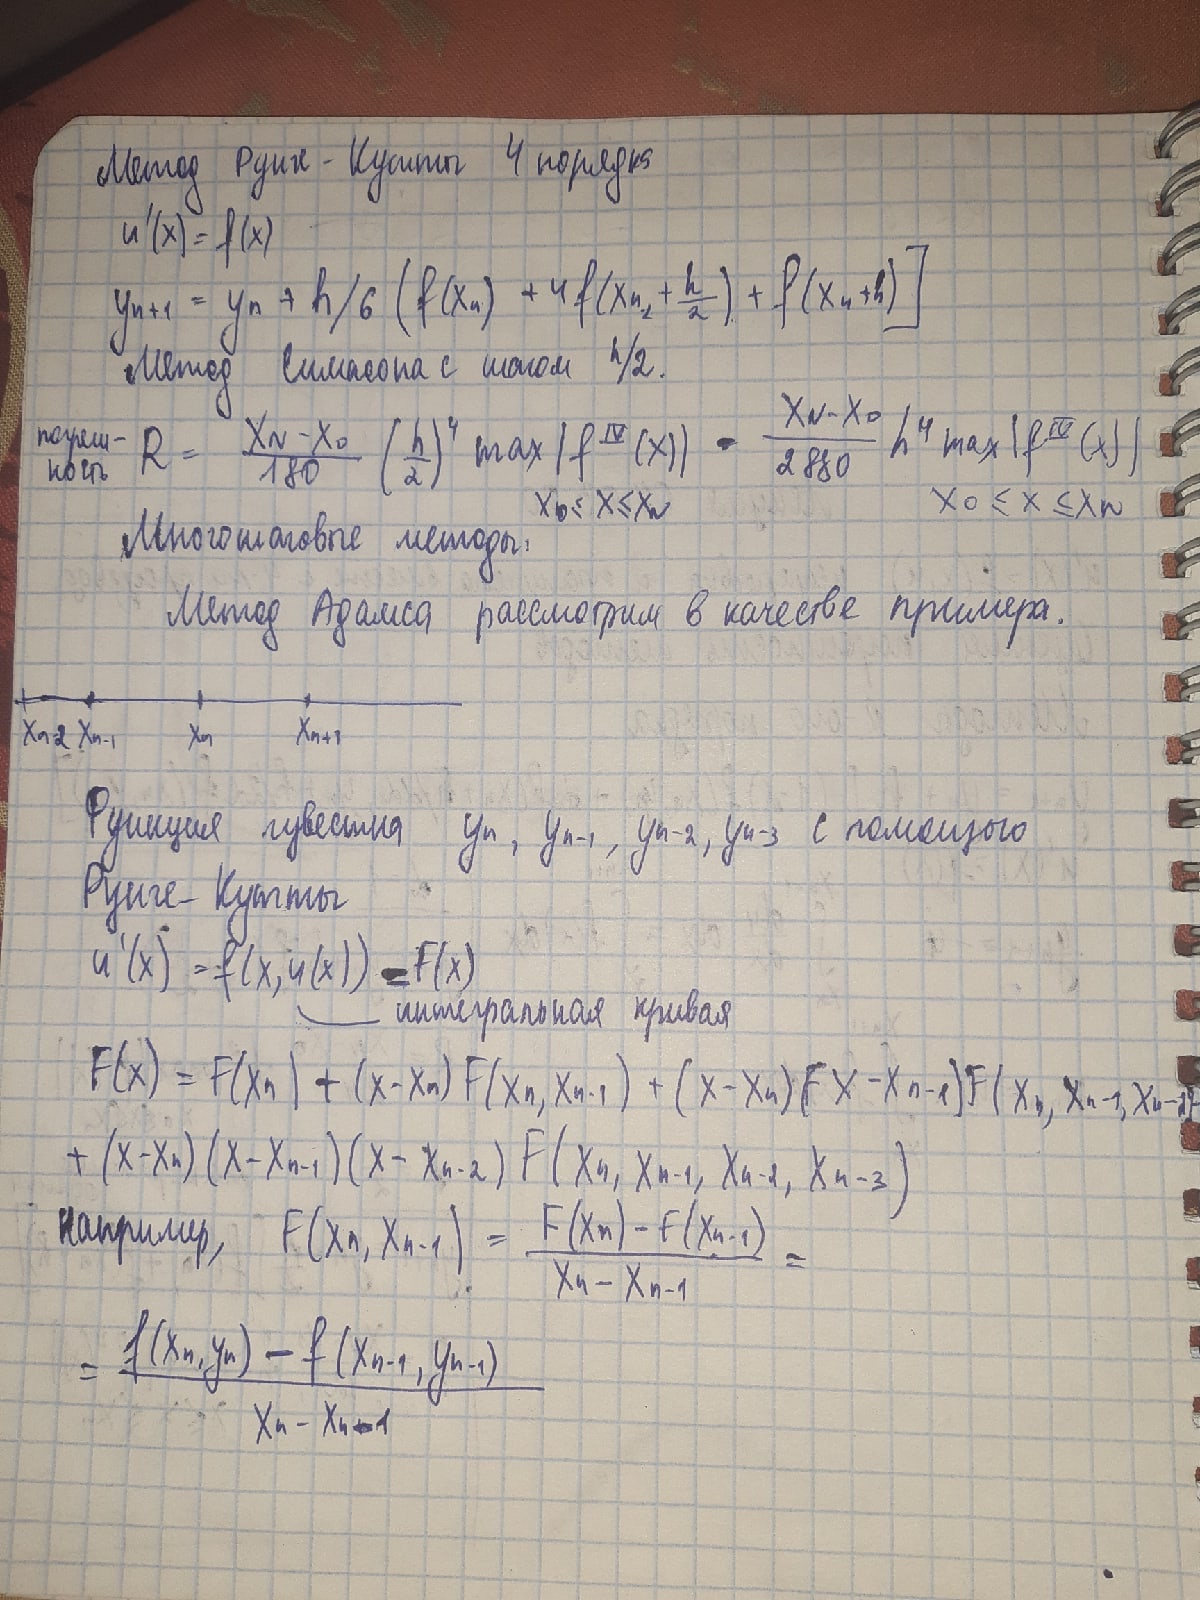 Метод Рунге-Кутты 4 порядка
u'(x) = f(x)
yn+1 = yn + h/6 (f(xn) + 4f(xn + h/2) + f(xn+h)]
Метод Симпсона с шагом h/2.
погреш-ность R = (xN-x0)/180 (h/2)^4 max|f^IV(x)| = (xN-x0)/2880 h^4 max|f^IV(x)|
x0 ≤ x ≤ xN x0 ≤ x ≤ xN
Многошаговые методы:
Метод Адамса рассмотрим в качестве примера.
xn-2 xn-1 xn xn+1
Функция известна yn, yn-1, yn-2, yn-3 с помощью
Рунге-Кутты
u'(x) = f(x, u(x)) = F(x)
интегральная кривая
F(x) = F(xn) + (x-xn) F(xn, xn-1) + (x-xn)(x-xn-1)F(xn, xn-1, xn-2)+
+ (x-xn)(x-xn-1)(x-xn-2) F(xn, xn-1, xn-2, xn-3)
Например, F(xn, xn-1) = (F(xn) - F(xn-1))/(xn - xn-1) =
= (f(xn, yn) - f(xn-1, yn-1))/(xn - xn-1)